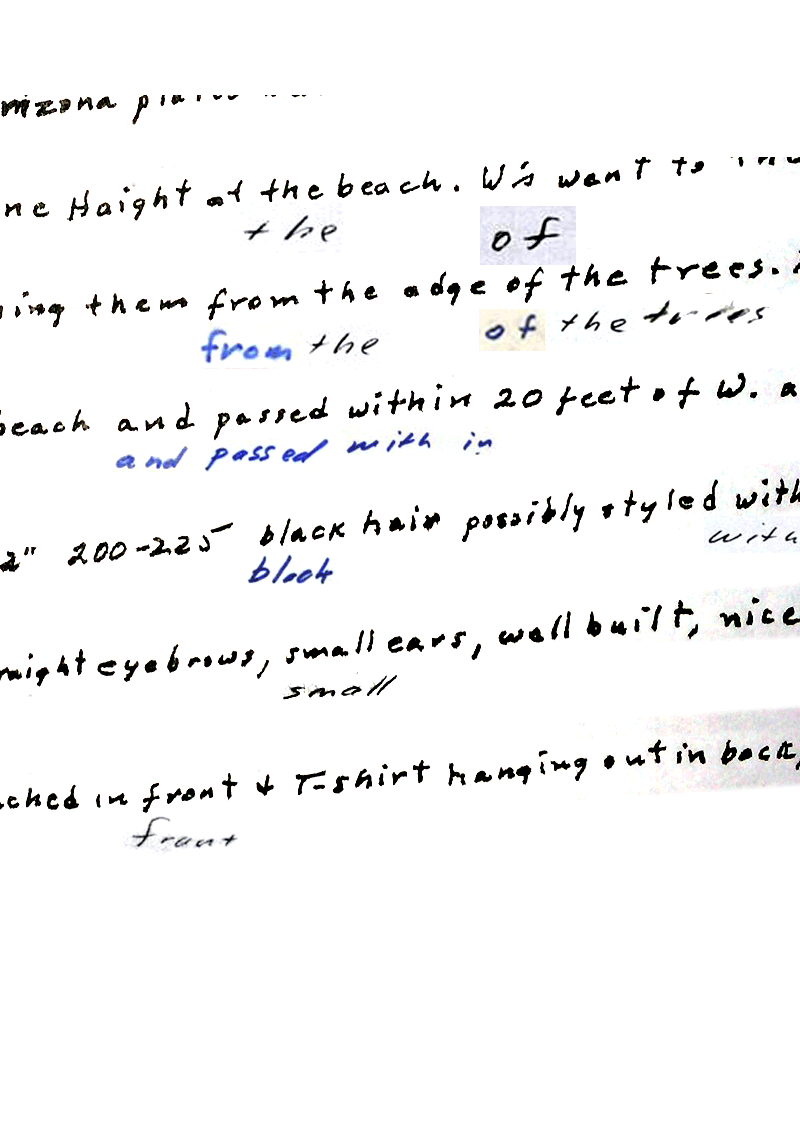 ne Haight at the beach. W's want to
the of
ing them from the edge of the trees.
from the of the trees
beach and passed within 20 feet of W. a
and passed with in
2" 200-225 black hair possibly styled with
black with
aight eyebrows, small ears, well built, nice
small
ched in front & T-shirt hanging out in back,
front